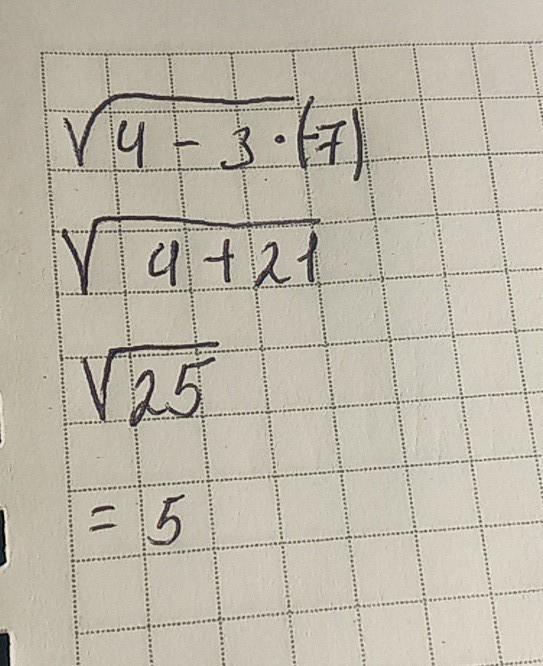 √4 - 3 · (-7)
√4 + 21
√25
= 5